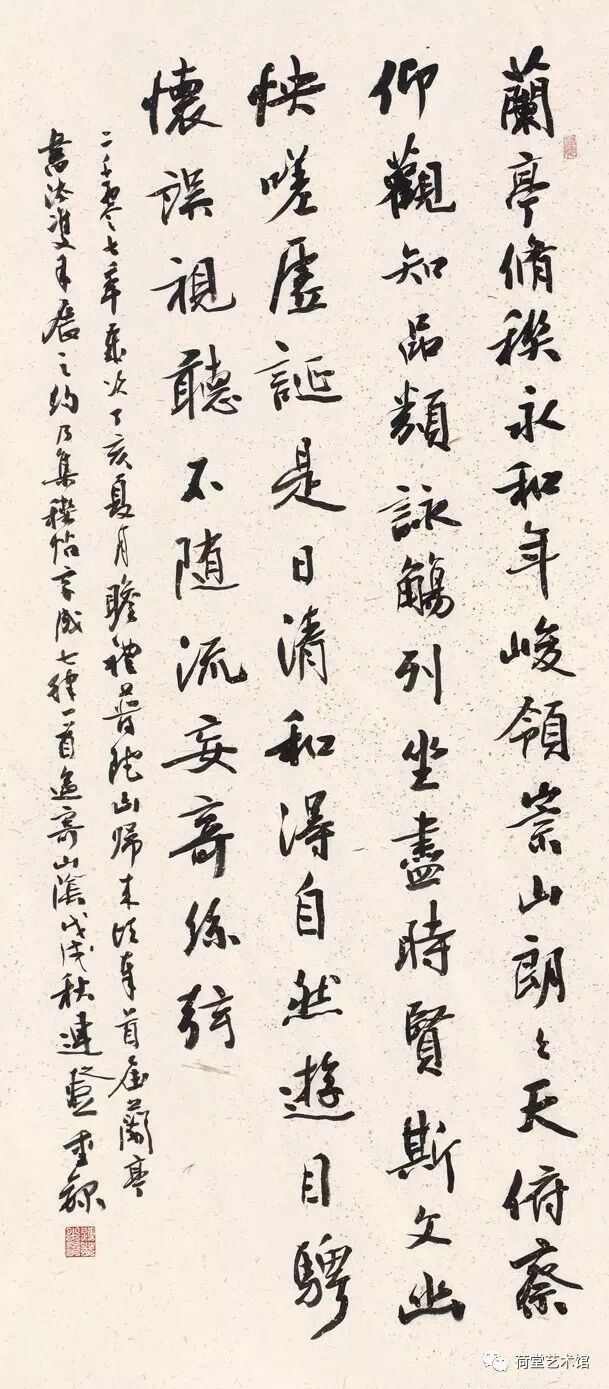 蘭亭脩稧永和年峻領崇山朗々天俯察
仰觀知品類詠觴列坐盡時賢斯文幽
怏嗟虛誕是日清和得自然遊目騁
懷娛視聽不隨流妄寄絲弦
二千零七年歲次丁亥夏月瞻禮普陀山歸來後奉首屆蘭亭
書法雙年展之約乃集稧帖字成七律一首遙寄山陰戊戌秋連登重錄
荷堂艺术馆